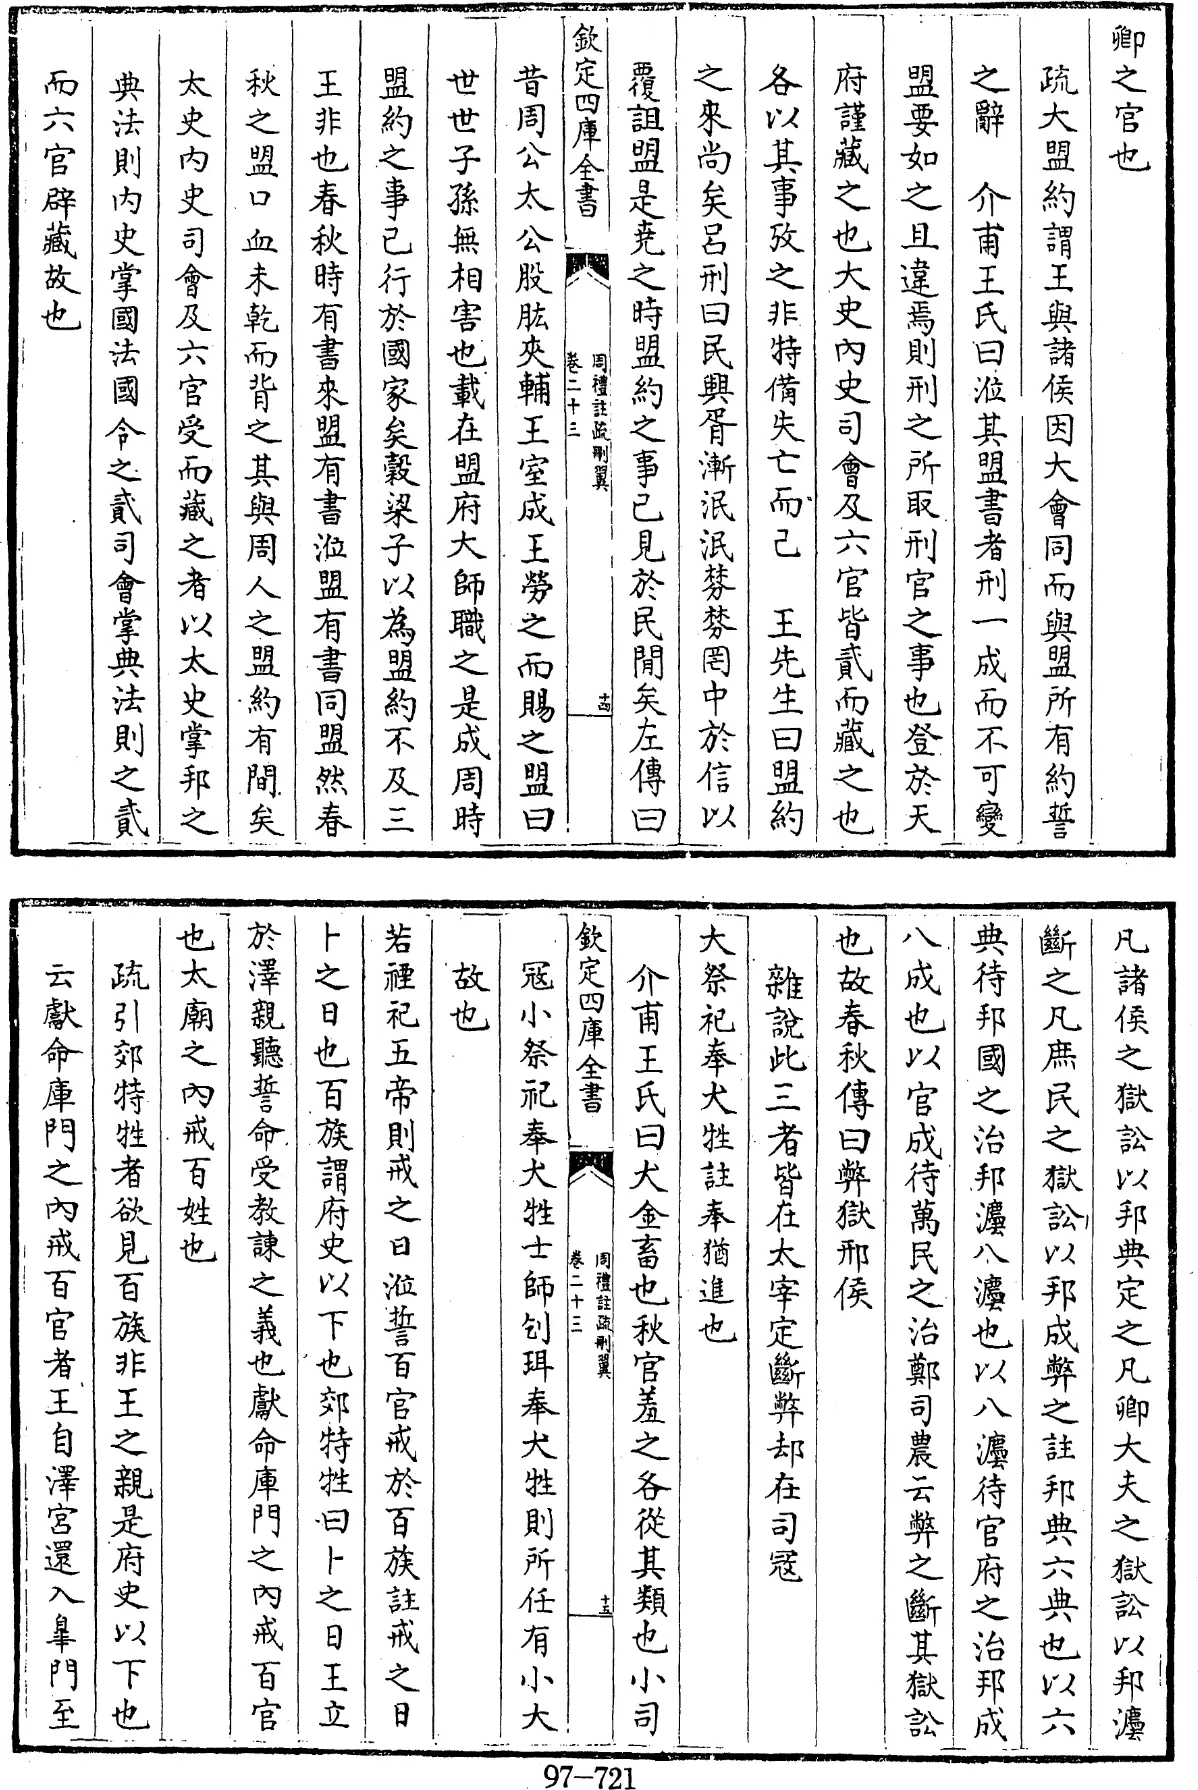 卿之官也
疏大盟約謂王與諸侯因大會同而與盟所有約誓
之辭　介甫王氏曰涖其盟書者刑一成而不可變
盟要如之且違焉則刑之所取刑官之事也登於天
府謹藏之也大史內史司會及六官皆貳而藏之也
各以其事攷之非特備失亡而已　王先生曰盟約
之來尚矣呂刑曰民興胥漸泯泯棼棼罔中於信以
覆詛盟是堯之時盟約之事已見於民間矣左傳曰
欽定四庫全書
周禮註疏刪翼
卷二十三
十四
昔周公太公股肱夾輔王室成王勞之而賜之盟曰
世世子孫無相害也載在盟府大師職之是成周時
盟約之事已行於國家矣穀梁子以為盟約不及三
王非也春秋時有書來盟有書涖盟有書同盟然春
秋之盟口血未乾而背之其與周人之盟約有間矣
太史內史司會及六官受而藏之者以太史掌邦之
典法則內史掌國法國令之貳司會掌典法則之貳
而六官辟藏故也
凡諸侯之獄訟以邦典定之凡卿大夫之獄訟以邦灋
斷之凡庶民之獄訟以邦成弊之註邦典六典也以六
典待邦國之治邦灋八灋也以八灋待官府之治邦成
八成也以官成待萬民之治鄭司農云弊之斷其獄訟
也故春秋傳曰弊獄邢侯
雜說此三者皆在太宰定斷弊却在司寇
大祭祀奉犬牲註奉猶進也
介甫王氏曰犬金畜也秋官羞之各從其類也小司
欽定四庫全書
周禮註疏刪翼
卷二十三
十五
寇小祭祀奉犬牲士師刉珥奉犬牲則所任有小大
故也
若禋祀五帝則戒之日涖誓百官戒於百族註戒之日
卜之日也百族謂府史以下也郊特牲曰卜之日王立
於澤親聽誓命受教諫之義也獻命庫門之內戒百官
也太廟之內戒百姓也
疏引郊特牲者欲見百族非王之親是府史以下也
云獻命庫門之內戒百官者王自澤宮還入臯門至
97-721